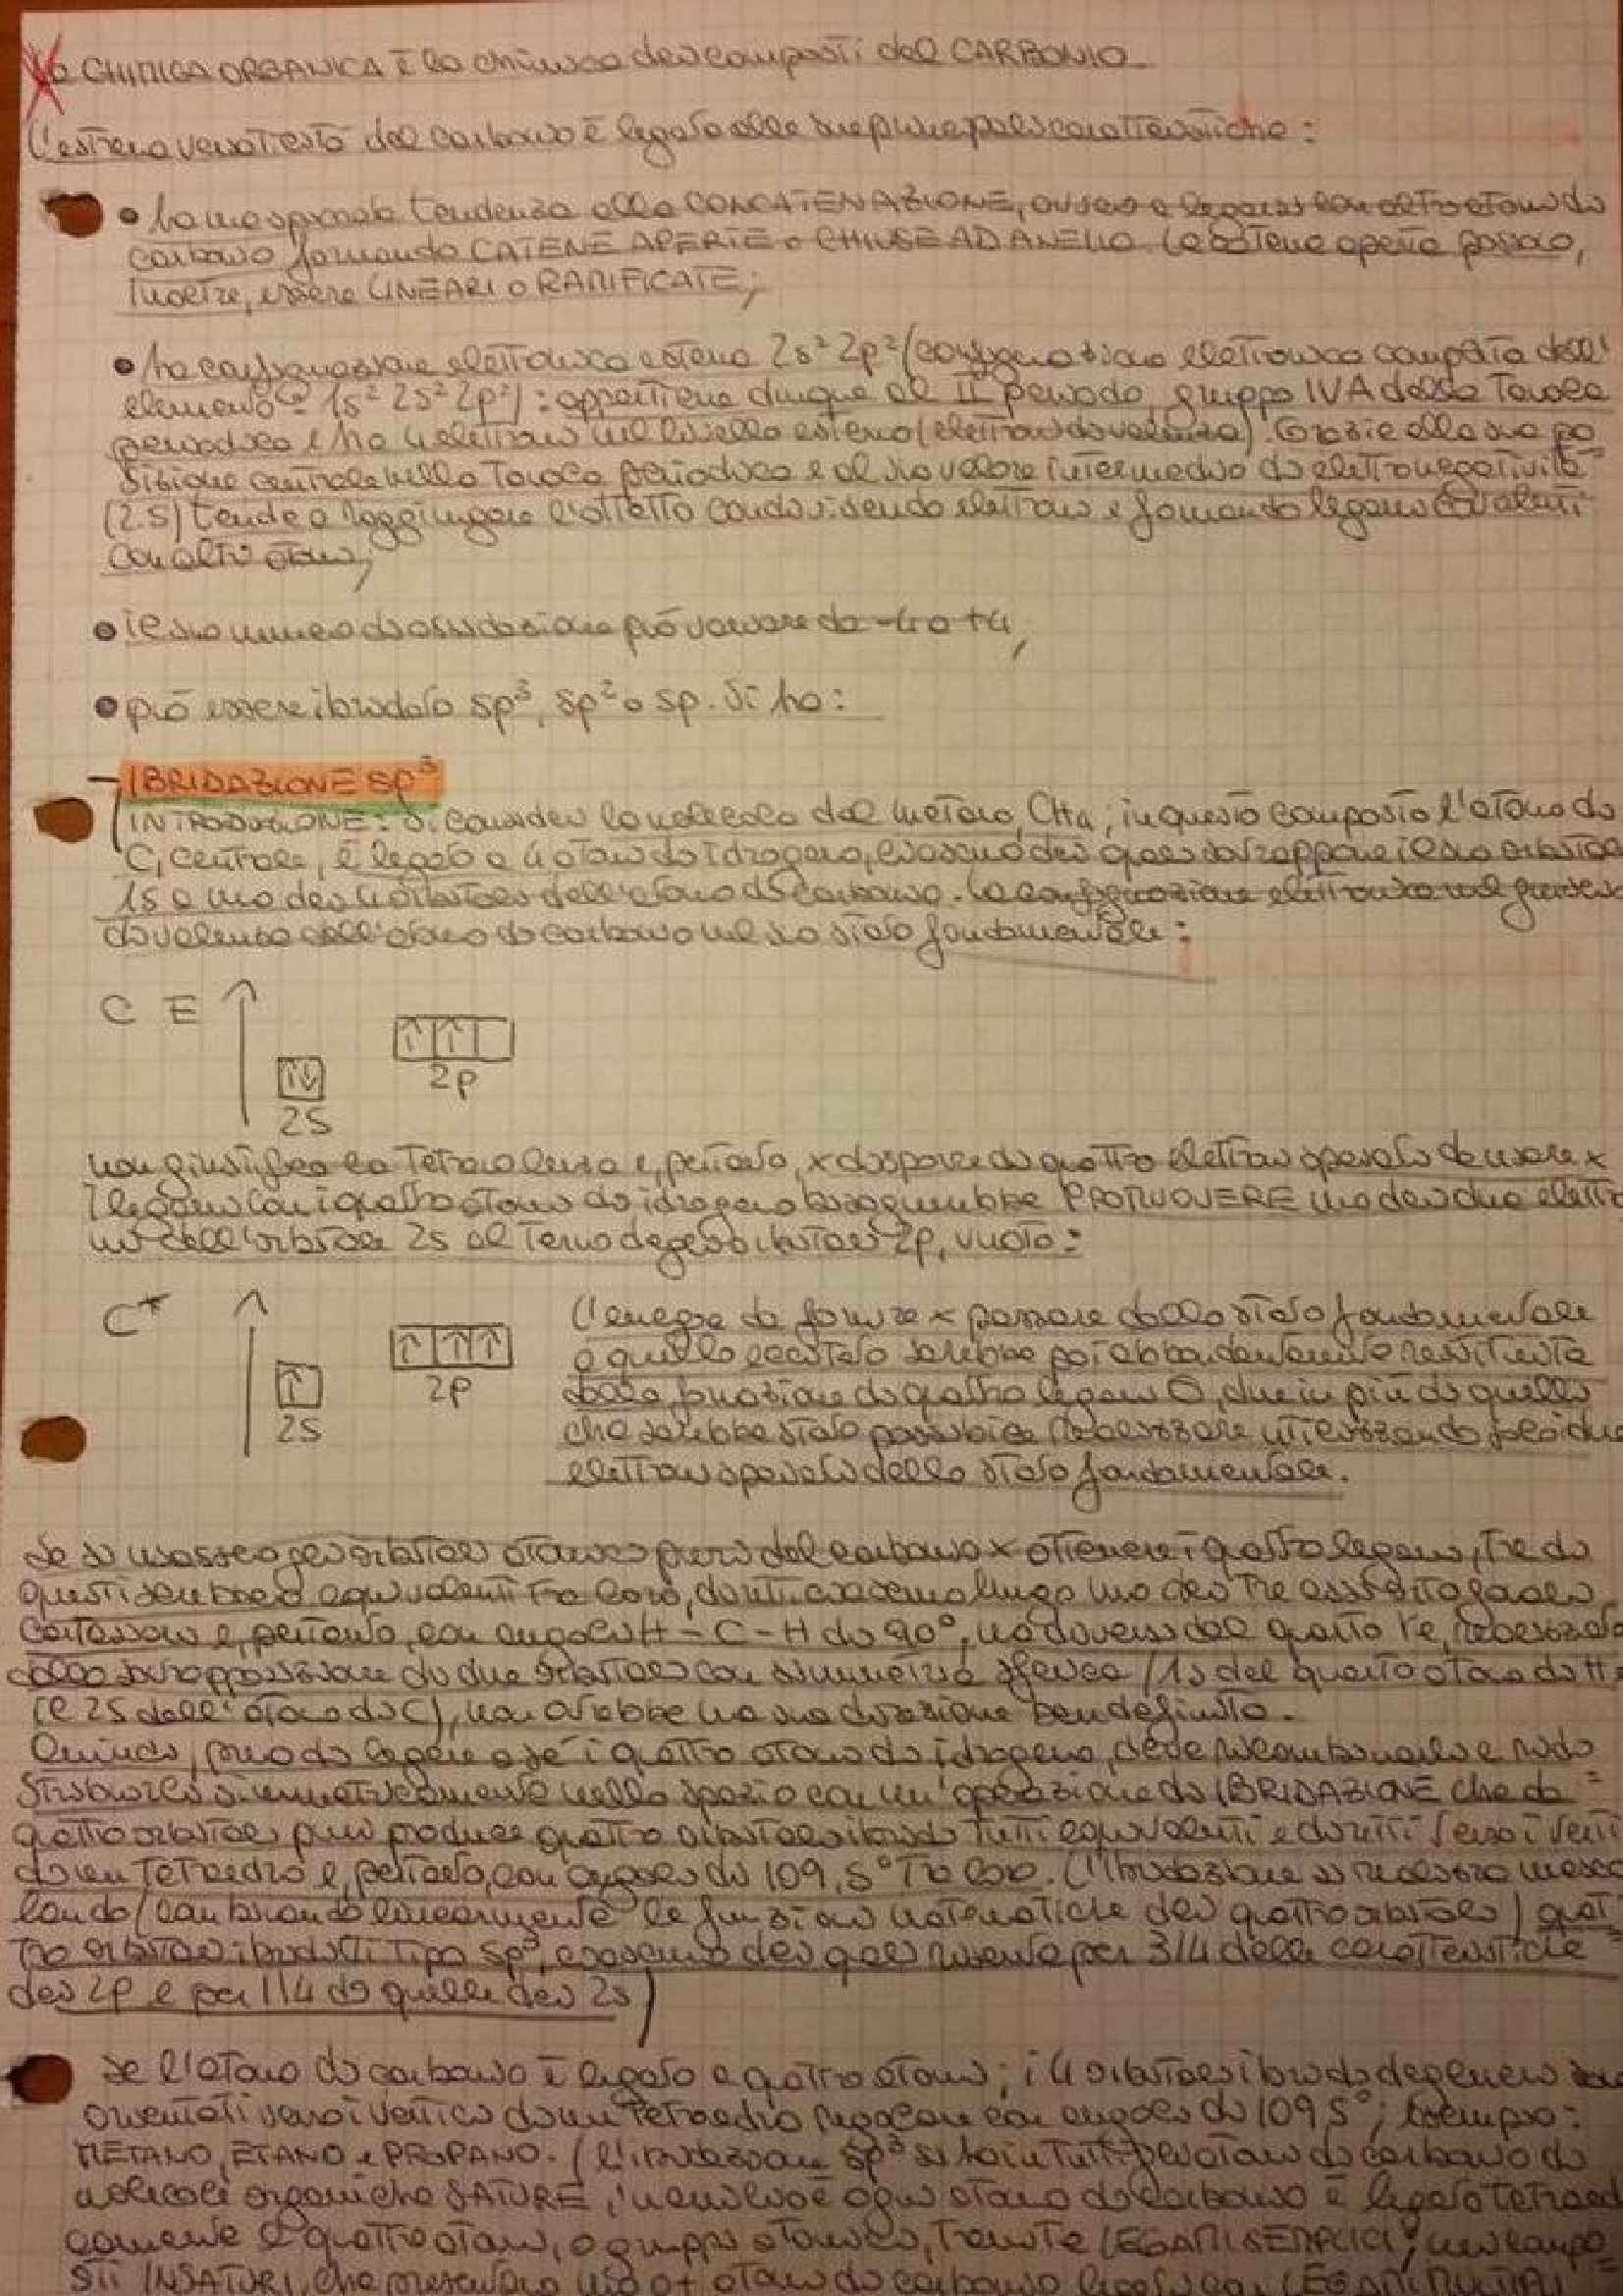 La CHIMICA ORGANICA è la chimica dei composti del CARBONIO.
L'estrema versatilità del carbonio è legata alle sue principali caratteristiche:
• ha una spiccata tendenza alla CONCATENAZIONE, ovvero a legarsi con altri atomi di
carbonio formando CATENE APERTE o CHIUSE AD ANELLO. Le catene aperte possono,
inoltre, essere LINEARI o RAMIFICATE;
• ha configurazione elettronica esterna 2s² 2p² (configurazione elettronica completa dell'
elemento = 1s² 2s² 2p²): appartiene dunque al II periodo, gruppo IVA della Tavola
periodica e ha 4 elettroni nel livello esterno (elettroni di valenza). Grazie alla sua po
sizione centrale nella Tavola periodica e al suo valore intermedio di elettronegatività
(2.5) tende a raggiungere l'ottetto condividendo elettroni e formando legami covalenti
con altri atomi;
• il suo numero di ossidazione può variare da -4 a +4;
• può essere ibridato sp³, sp² o sp. Si ha:
- IBRIDAZIONE sp³
INTRODUZIONE: Si consideri la molecola del metano, CH4; in questo composto l'atomo di
C, centrale, è legato a 4 atomi di idrogeno, ciascuno dei quali sovrappone il suo orbitale
1s a uno dei 4 orbitali dell'atomo di carbonio. La configurazione elettronica nel guscio
di valenza dell'atomo di carbonio nel suo stato fondamentale:
C E
2s 2p
non giustifica la tetravalenza e, pertanto, x disporre di quattro elettroni spaiati da usare x
i legami con i quattro atomi di idrogeno bisognerebbe PROMUOVERE uno dei due elettro
ni dell'orbitale 2s al terzo degli orbitali 2p, vuoto:
C*
2s 2p
L'energia da fornire x passare dallo stato fondamentale
a quello eccitato sarebbe poi abbondantemente restituita
dalla formazione di quattro legami σ, due in più di quelli
che sarebbe stato possibile realizzare utilizzando solo i due
elettroni spaiati dello stato fondamentale.
Se si usassero gli orbitali atomici puri del carbonio x ottenere i quattro legami, tre di
questi sarebbero equivalenti tra loro, diretti ciascuno lungo uno dei tre assi ortogonali
cartesiani e, pertanto, con angoli H-C-H di 90°, ma diversi dal quarto che, realizzato
dalla sovrapposizione di due orbitali con simmetria sferica (1s del quarto atomo di H
e 2s dell'atomo di C), non avrebbe una sua direzione ben definita.
Quindi, prima di legare a sé i quattro atomi di idrogeno, deve ricombinarli e ridi
stribuirli simmetricamente nello spazio con un'operazione di IBRIDAZIONE che da
quattro orbitali puri produce quattro orbitali ibridi tutti equivalenti e diretti verso i vertici
di un tetraedro e, pertanto, con angoli di 109,5° tra loro. (L'ibridazione si realizza mesco
lando (combinando linearmente le funzioni matematiche dei quattro orbitali) quat
tro orbitali ibridi di tipo sp³, ciascuno dei quali risente per 3/4 delle caratteristiche
dei 2p e per 1/4 di quelle dei 2s)
Se l'atomo di carbonio è legato a quattro atomi; i 4 orbitali ibridi degeneri sono
orientati verso i vertici di un tetraedro regolare con angoli di 109,5°; Esempio:
METANO, ETANO e PROPANO. (L'ibridazione sp³ si ha in tutti gli atomi di carbonio di
molecole organiche SATURE, in cui cioè ogni atomo di carbonio è legato tetraedri
camente a quattro atomi, o gruppi atomici, tramite LEGAMI SEMPLICI; nei compo
sti INSATURI, che presentano uno o + atomi di carbonio legati con LEGAMI MULTIPLI